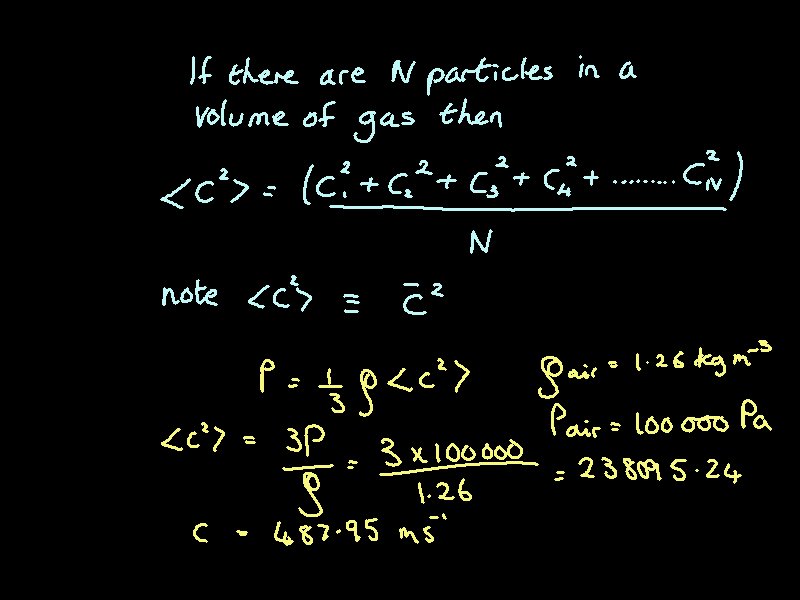 If there are N particles in a
volume of gas then
<C²> = (C₁² + C₂² + C₃² + C₄² + ......... C_N²)
N
note <C²> ≡ C̄²
P = 1/3 ρ <C²>
ρair = 1.26 kg m⁻³
Pair = 100 000 Pa
<C²> = 3P/ρ = 3 x 100000/1.26 = 238095.24
C = 487.95 ms⁻¹